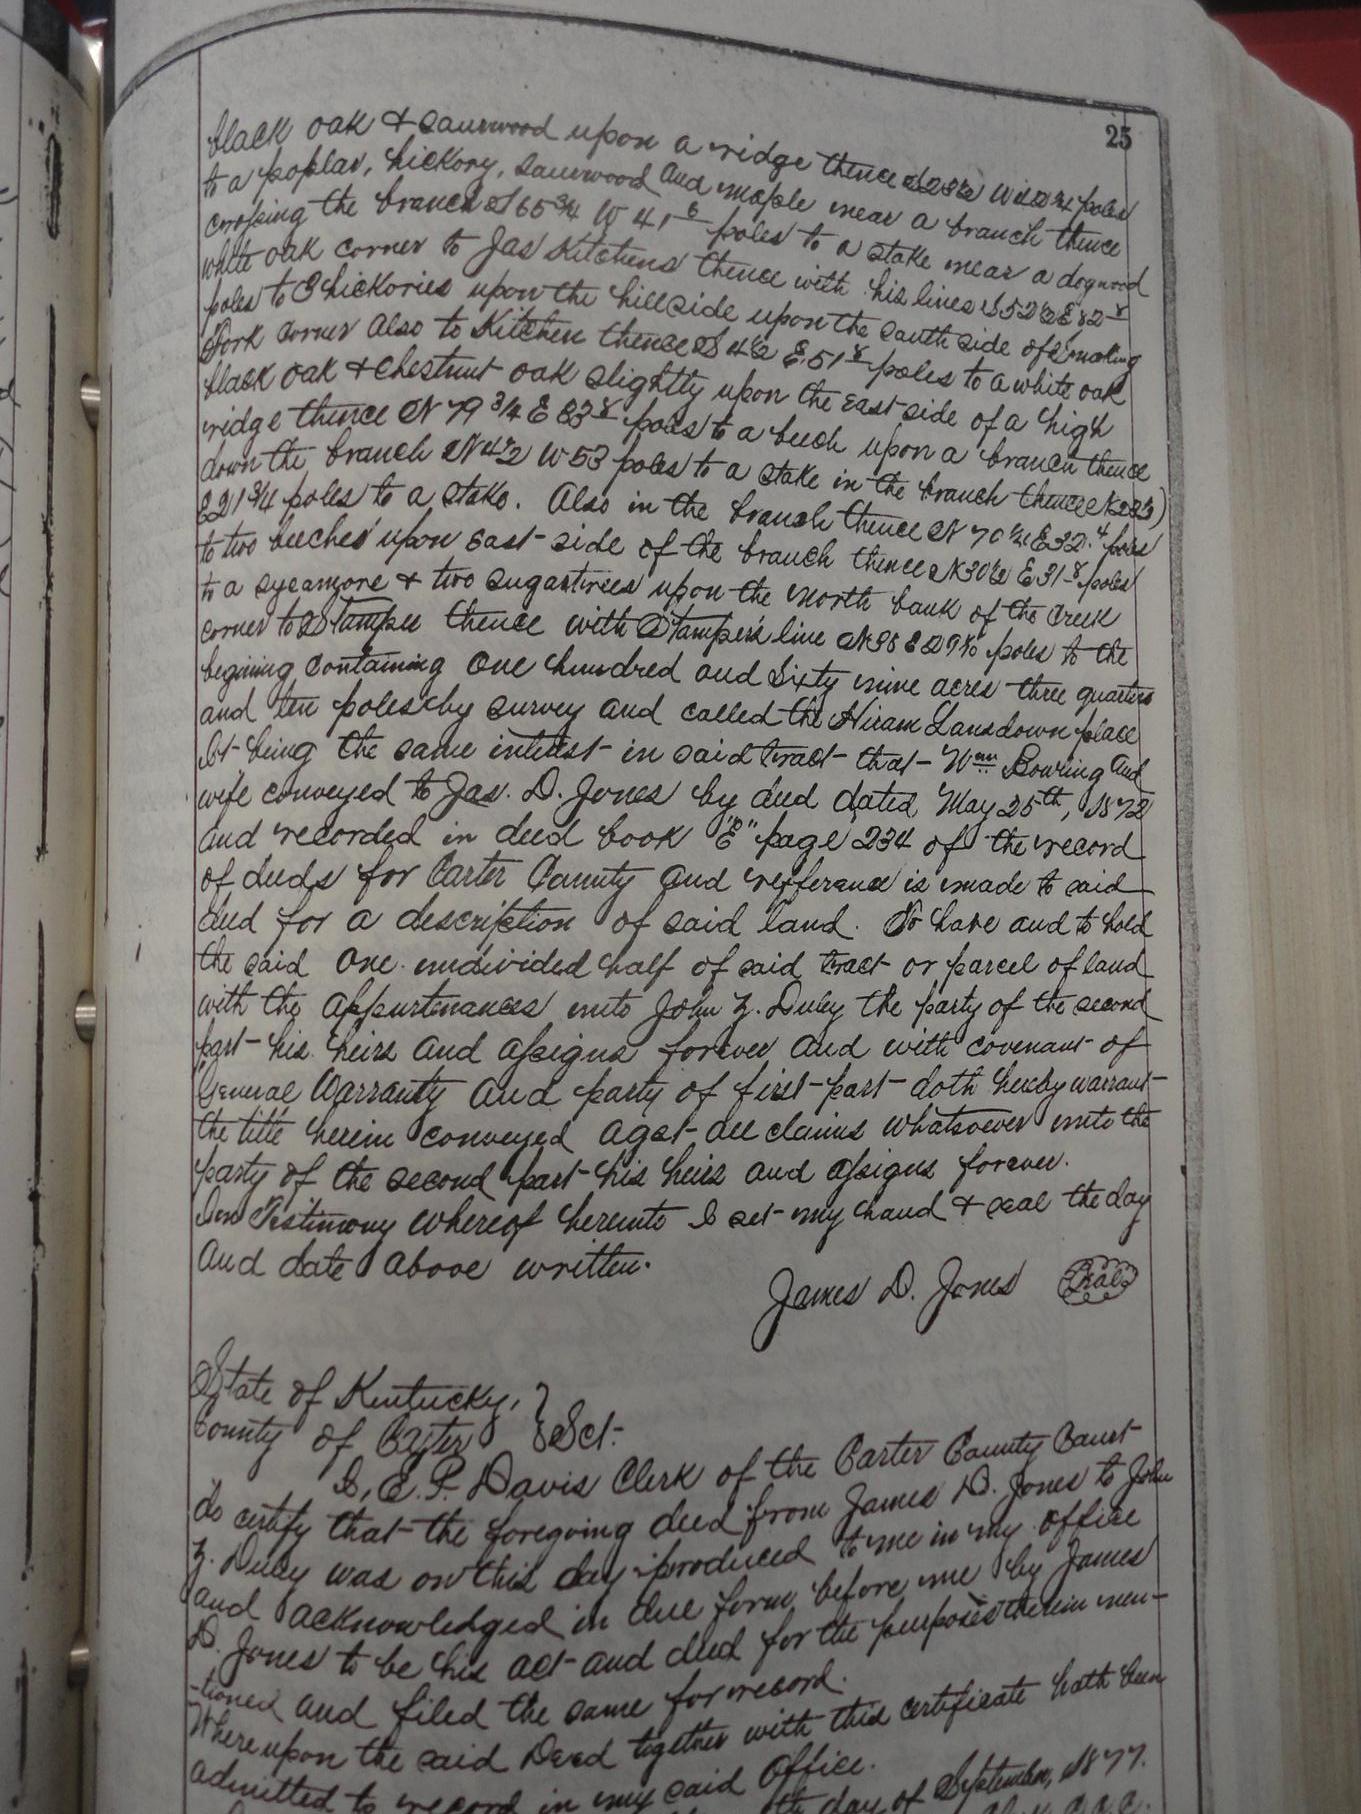 25
black oak & saurwood upon a ridge thence S 28½ W poles
to a poplar, hickory, saurwood and maple near a branch thence
crossing the branch S 65 ¾ W 41 6 poles to a stake near a dogwood
white oak corner to Jas Kitchens thence with his lines S 52½ E 82 8
poles to 3 hickories upon the hillside upon the south side of Smoking
Fork corner also to Kitchen thence S 4½ E 51 8 poles to a white oak
black oak & chestnut oak slightly upon the east side of a high
ridge thence N 79 ¾ E 83 8 poles to a beech upon a branch thence
down the branch N 4½ W 53 poles to a stake in the branch thence
E 21 ¾ poles to a stake. Also in the branch thence N 70 ¼ E 32.4 poles
to two beeches upon east side of the branch thence N 30½ E 31 8 poles
to a sycamore & two sugartrees upon the north bank of the creek
corner to Stamper thence with Stamper's line N 38 E poles to the
begining containing one hundred and sixty nine acres three quarters
and ten poles by survey and called the Hiram Lansdown place
It being the same intrest in said tract that Wm Bowring and
wife conveyed to Jas. D. Jones by deed dated May 25th, 1872
and recorded in deed book "E" page 234 of the record
of deeds for Carter County and refferance is made to said
deed for a description of said land. To have and to hold
the said one undivided half of said tract or parcel of land
with the appurtenances unto John Z. Duley the party of the second
part his heirs and assigns forever and with covenant of
General Warranty and party of first part doth hereby warrant
the title herein conveyed agst all claims whatsoever unto the
party of the second part his heirs and assigns forever.
In Testimony whereof hereunto I set my hand & seal the day
and date above written.
James D. Jones Seal
State of Kentucky,
County of Carter Sct.
I, E. P. Davis Clerk of the Carter County Court
do certify that the foregoing deed from James D. Jones to John
Z. Duley was on this day produced to me in my office
and acknowledged in due form before me by James
D. Jones to be his act and deed for the purposes therein men-
-tioned and filed the same for record.
Whereupon the said Deed together with this certificate hath been
admitted to record in my said Office.
th day of September, 1877.